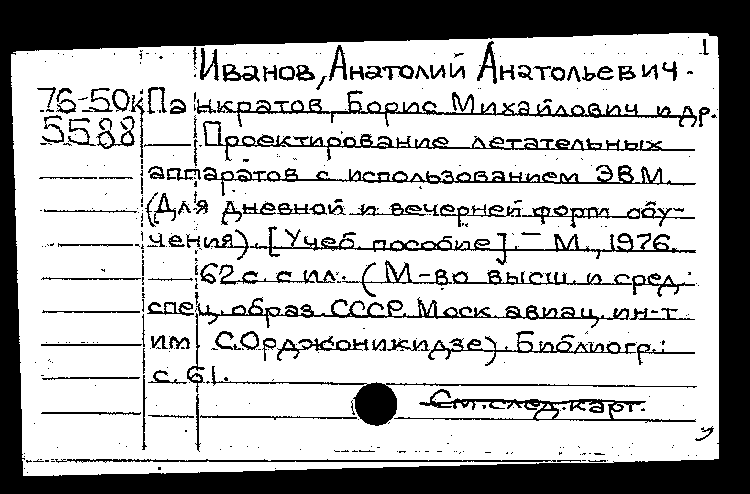 1
Иванов, Анатолий Анатольевич.
76-50к Панкратов, Борис Михайлович и др.
5588 Проектирование летательных
аппаратов с использованием ЭВМ.
(Для дневной и вечерней форм обу-
чения). [Учеб. пособие]. – М., 1976.
62 с. с ил. (М-во высш. и сред.
спец. образ. СССР. Моск. авиац. ин-т
им. С. Орджоникидзе). Библиогр.:
с. 61.
См. след. карт.